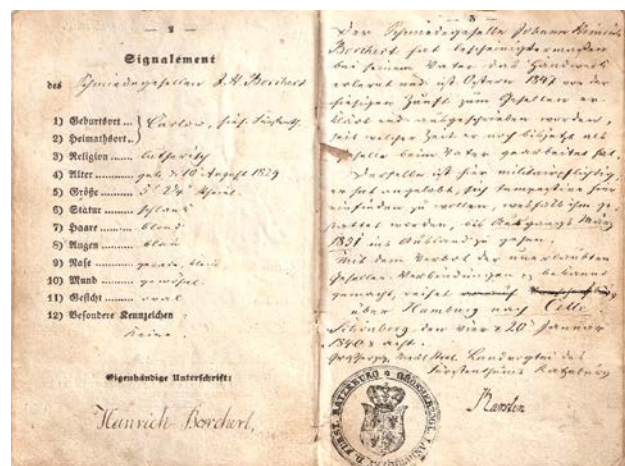 — 2 —
Signalement
des Schmiedegesellen J. H. Borchert
1) Geburtsort ... } Carlow, hies. Fürstenth.
2) Heimathsort ..
3) Religion ........ lutherisch
4) Alter ........... geb. d. 10 August 1829
5) Größe ........... 5' 2¼"
6) Statur .......... schlank
7) Haare .......... blond
8) Augen .......... blau
9) Nase ...........
10) Mund .......... gewöhnl.
11) Gesicht ........ oval
12) Besondere Kennzeichen :
keine.
Eigenhändige Unterschrift:
Heinrich Borchert.
— 3 —
Der Schmiedegeselle Johann Heinrich
Borchert hat bescheinigtermaßen
bei seinem Vater das Handwerk
erlernt und ist Ostern 1847 von der
hiesigen Zunft zum Gesellen er-
klärt und ausgeschrieben worden,
seit welcher Zeit er noch bis jetzt als
Geselle beim Vater gearbeitet hat.
Derselbe ist hier militairpflichtig,
er hat angelobt, sich tempestive hier
einfinden zu wollen, weshalb ihm ge-
stattet worden, bis Ausgangs März
1851 ins Ausland zu gehen.
Mit dem Verbot der unerlaubten
Gesellen-Verbindungen bekannt
gemacht, reiset
über Hamburg nach Celle.
Schönberg den vier u 20 Januar
184 acht.
Landvogtei des
Fürstenthums Ratzeburg
Karsten